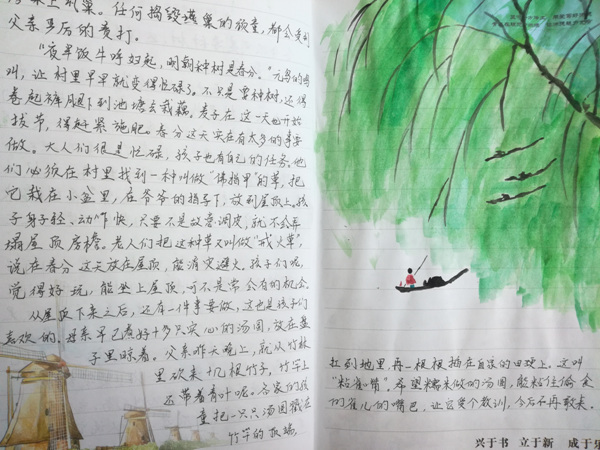 父亲严厉的责打。
"夜半饭牛呼妇起，明朝种树是春分。"元鸟的鸣
叫，让村里早早就变得忙碌了。不只是要种树，还得
卷起裤腿下到池塘去栽藕。麦子在这一天也开始
拔节，得赶紧施肥。春分这天实在有太多的事要
做。大人们很是忙碌，孩子也有自己的任务。他
们必须在村里找到一种叫做"佛指甲"的草，把
它栽在小盆里，在爷爷的指导下，放到屋顶上。孩
子身子轻、动作快，只要不是故意调皮，就不会弄
塌屋顶房檐。老人们把这种草又叫做"戒火草"，
说在春分这天放在屋顶，能消灾避火。孩子们呢，
觉得好玩，能坐上屋顶，可不是常会有的机会。
从屋顶下来之后，还有一件事要做，这也是孩子们
喜欢的。母亲早已煮好十多只实心的汤圆，放在盘
子里晾着。父亲昨天晚上，就从竹林
里砍来十几根竹子，竹竿上
还带着青叶呢。各家的孩
童把一只只汤圆戳在
竹竿的顶端，
扛到地里，再一根根插在自家的田埂上。这叫
"粘雀嘴"，希望糯米做的汤圆，能粘住偷食
的雀儿的嘴巴，让它受个教训，今后不再敢来。
兴于书 立于新 成于乐